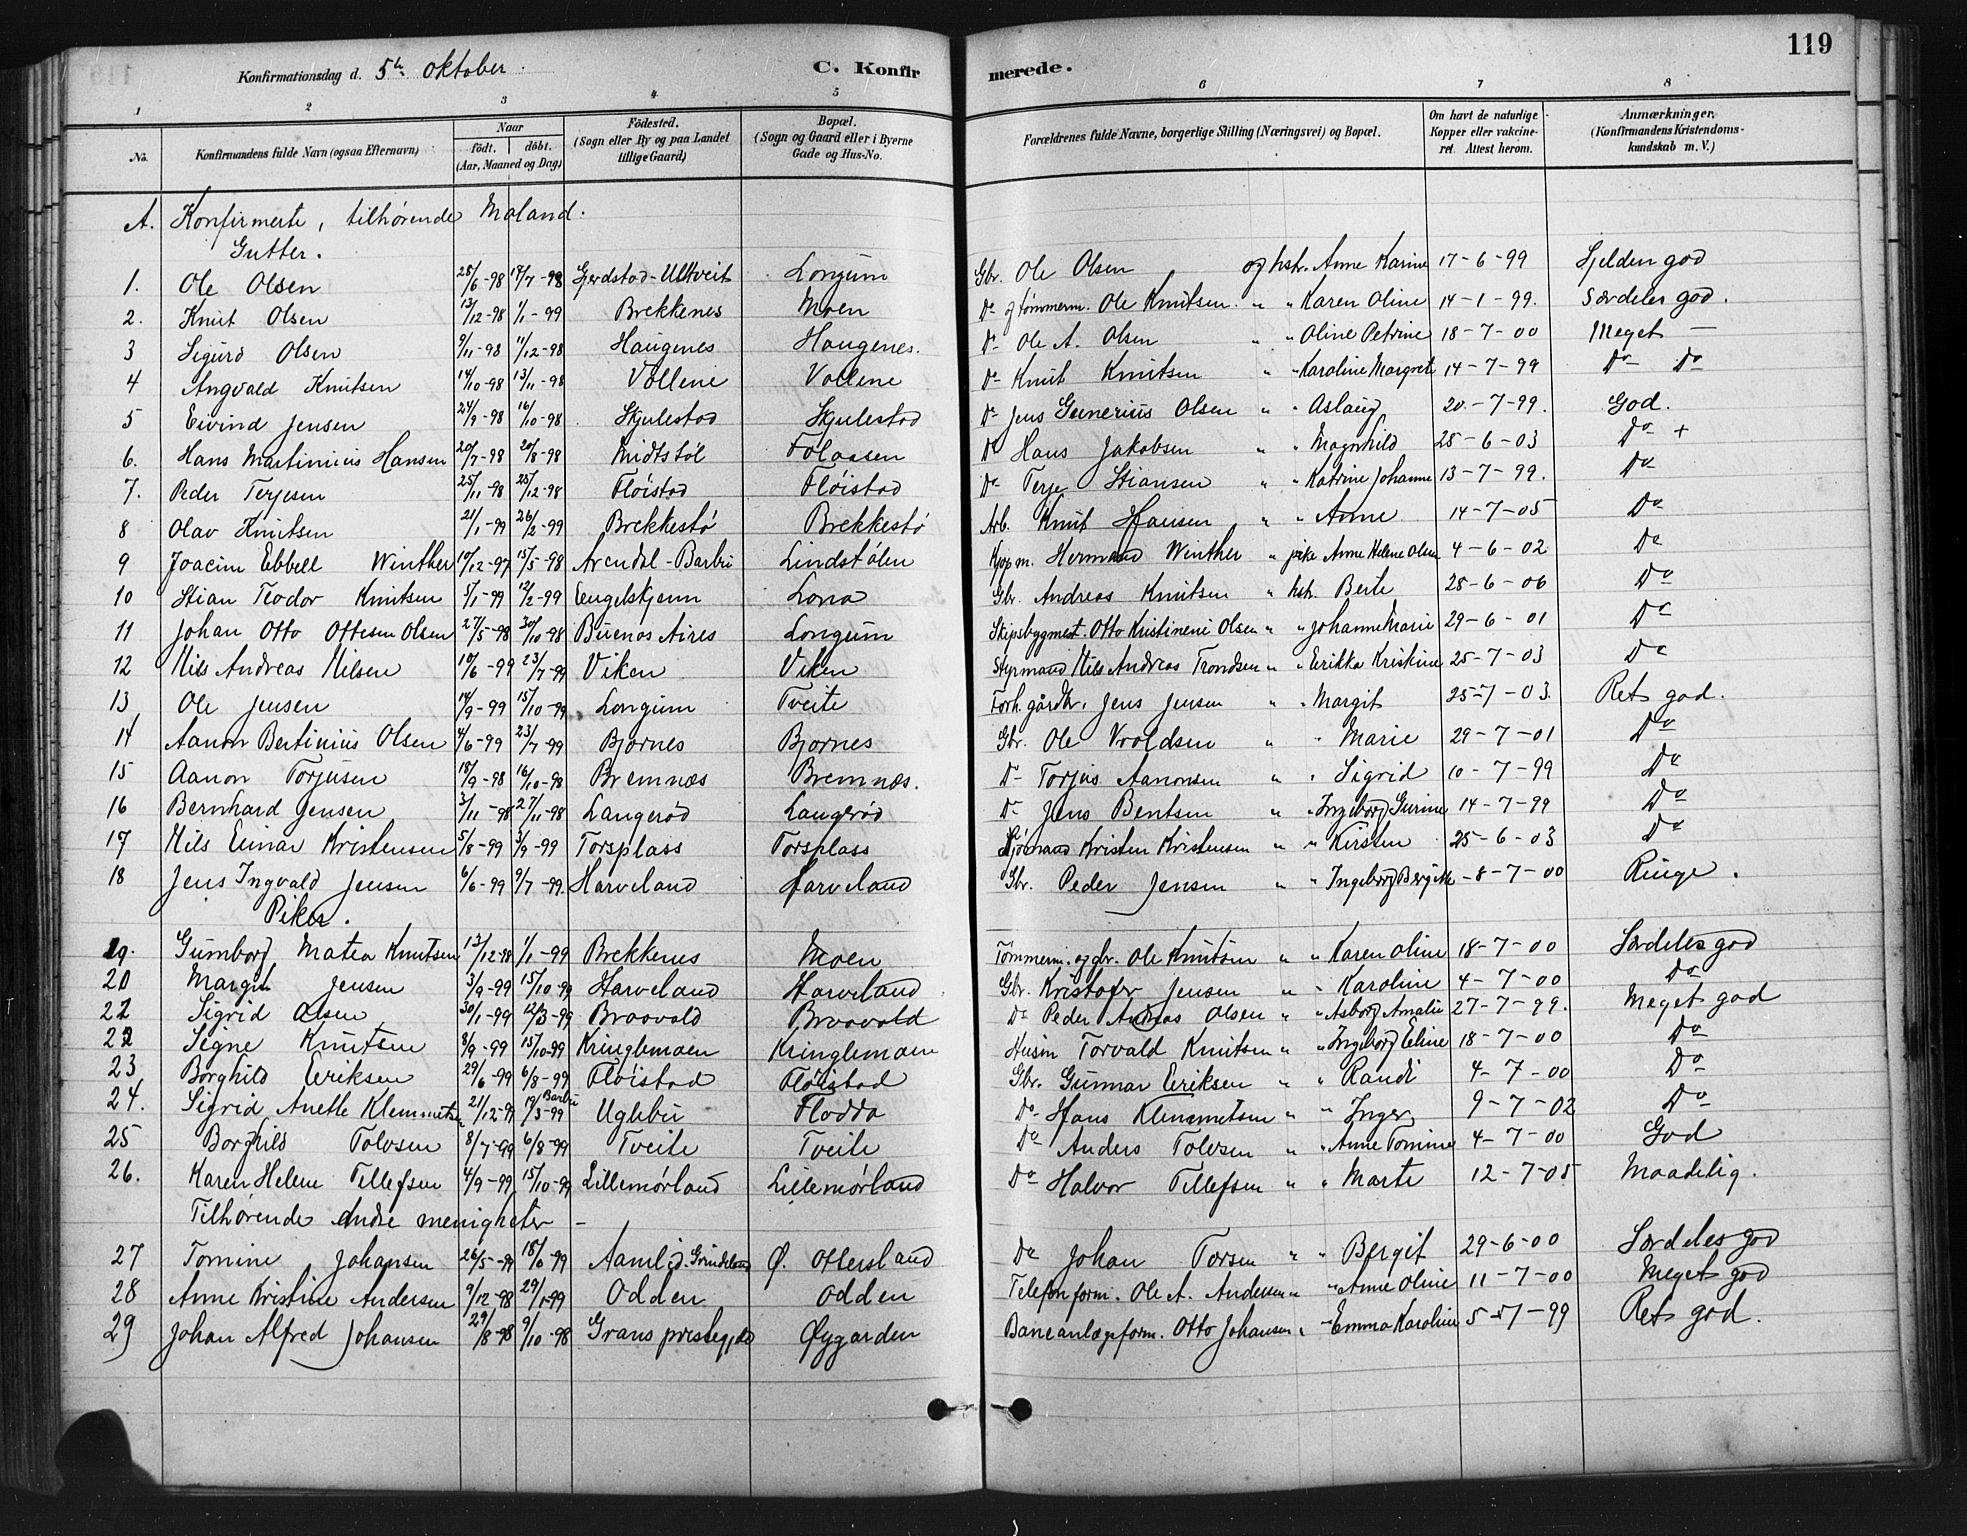 119
Konfirmationsdag d. 5te oktober. C. Konfirmerede.
1 2 3 4 5 6 7 8
No. Konfirmandens fulde Navn (ogsaa Efternavn) Naar født. døbt. (Aar, Maaned og Dag) Födested. (Sogn eller By og paa Landet tillige Gaard) Bopæl. (Sogn og Gaard eller i Byerne Gade og Hus-No. Forældrenes fulde Navne, borgerlige Stilling (Næringsvei) og Bopæl. Om havt de naturlige Kopper eller vakcineret. Attest herom. Anmærkninger. (Konfirmandens Kristendomskundskab m. V.)
A. Konfirmerte, tilhørende Moland.
Gutter.
1. Ole Olsen 28/6-98 17/7-98 Gjerdstad-Ulltveit Longum Gbr. Ole Olsen og hstr. Anne Karine 17-6-99 Sjelden god
2. Knut Olsen 13/12-98 1/1-99 Brekkenes Moen Do og tømmerm. Ole Knutsen " " Karen Oline 14-1-99. Særdeles god.
3 Sigurd Olsen 9/11-98 11/12-98 Haugenes Haugenes. Do Ole A. Olsen " " Oline Petrine 18-7-00 Meget —
4 Angvald Knutsen 14/10-98 13/11-98 Vollene Vollene Do Knut Knutsen " " Karoline Margrete 14-7-99 Do Do
5 Eivind Jensen 24/9-98 16/10-98 Skjulestad Skjulestad Do Jens Gunerius Olsen " " Aslaug 20-7-99. God.
6. Hans Martinius Hansen 20/7-98 20/8-98 Midtstøl Folaasen Do Hans Jakobsen " Magnhild 28-6-03 Do +
7. Peder Terjesen 25/11-98 25/12-98 Fløistad Fløistad Do Terje Stiansen " " Katrine Johanne 13-7-99. Do
8 Olav Knutsen 21/1-99 26/2-99 Brekkestø Brekkestø Arb. Knut Hansen " " Anne 14-7-05 Do
9 Joacim Ebbell Winther 10/12-97 15/5-98 Arendal-Barbu Lindstølen Kjøpm. Herman Winther " pike Anne Helene Olsen 4-6-02 Do
10 Stian Teodor Knutsen 5/1-99 12/2-99 Engelskjenn Lona Gbr. Andreas Knutsen " hstr. Berte 28-6-06 Do
11 Johan Otto Ottesen Olsen 27/5-98 30/10-98 Buenos Aires Longum Skipsbygmest. Otto Kristineni Olsen " " Johanne Marie 29-6-01 Do
12 Nils Andreas Nilsen 10/6-99 23/7-99 Viken Viken Styrmand Nils Andreas Trondsen " " Erikka Kristine 25-7-03 Do
13 Ole Jensen 14/9-99 15/10-99 Longum Tveite Forh. gårdbr. Jens Jensen " " Margit 25-7-03. Ret god.
14 Aanon Bertinius Olsen 4/6-99 23/7-99 Bjornes Bjornes Gbr. Ole Vroldsen " " Marie 29-7-01 Do
15 Aanon Torjusen 18/9-98 16/10-98 Bremnæs Bremnæs. Do Torjus Aanonsen " " Sigrid 10-7-99 Do
16 Bernhard Jensen 3/11-98 27/11-98 Langerød Langerød Do Jens Bentsen " " Ingeborg Gurine 14-7-99 Do
17 Nils Einar Kristensen 5/8-99 3/9-99 Torsplass Torsplass Sjømand Kristen Kristensen " " Kirsten 25-6-03 Do
18 Jens Ingvald Jensen 6/6-99 9/7-99. Harveland Harveland Gbr. Peder Jensen " " Ingeborg Bergitte -8-7-00 Ringe.
Piker.
19. Gunborg Matea Knutsen 13/12-98 1/1-99 Brekkenes Moen Tømmerm. og gbr. Ole Knutsen " " Karen Oline 18-7-00 Særdeles god
20 Margit Jensen 3/9-99 15/10-99 Harveland Harveland Gbr. Kristofer Jensen " " Karoline 4-7-00 Do
21 Sigrid Olsen 30/1-99 12/3-99 Braavold Braavold Do Peder Andreas Olsen " " Asborg Amalie 27-7-99. Meget god
22 Signe Knutsen 8/9-99 15/10-99 Kringlemoen Kringlemoen Husm Torvald Knutsen " " Ingeborg Eline 18-7-00 Do
23 Borghild Eriksen 29/6-99 6/8-99 Fløistad Fløistad Gbr. Gunnar Eriksen " " Randi 4-7-00 Do
24. Sigrid Anette Klemmetsen 21/12-97 19/3-99 Barbu Uglebu Flodda Do Hans Klemmetsen " " Inger 9-7-02 Do
25 Borghild Tolvsen 8/7-99 6/8-99 Tveite Tveite Do Anders Tolvsen " " Anne Tomine 4-7-00 God
26. Karen Helene Tellefsen 4/9-99 15/10-99 Lillemørland Lillemørland Do Halvor Tellefsen " " Marte 12-7-05 Maadelig.
Tilhørende andre menigheter –
27 Tomine Johansen 26/5-99 18/6-99 Aamlid. Grindeland Ø. Ottersland Do Johan Torsen " " Bergit 29-6-00 Særdeles god
28 Anne Kristine Andersen 9/12-98 29/1-99 Odden Odden Telefonform. Ole A. Andersen " " Anne Oline 11-7-00 Meget god
29 Johan Alfred Johansen 29/8-98 9/10-98 Grans prestegjeld Øygarden Baneanlægsform. Otto Johansen " " Emma Karoline 5-7-99 Ret god.